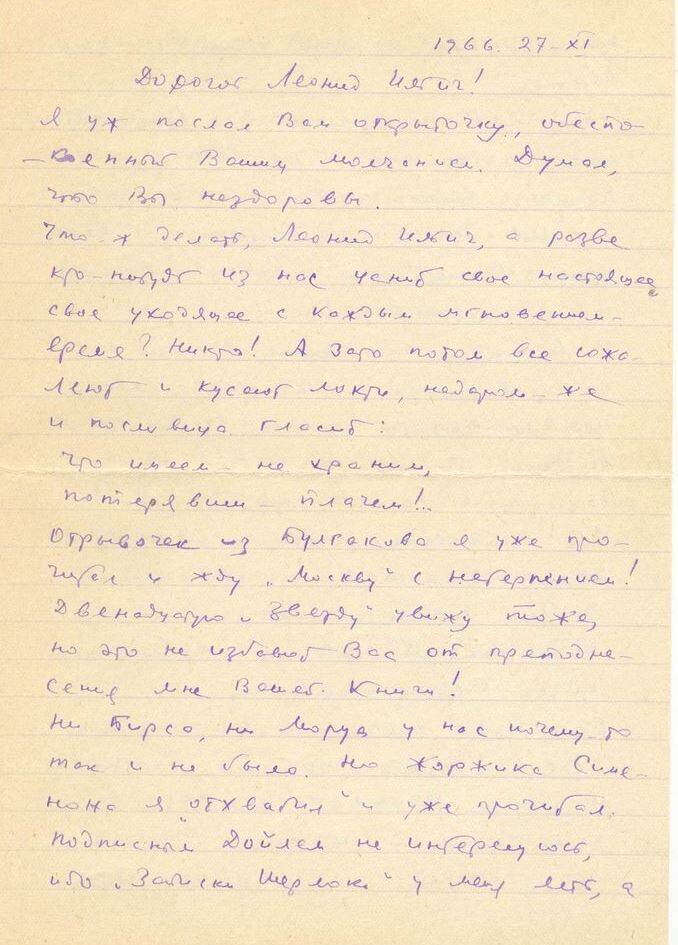 1966. 27-XI
Дорогой Леонид Ильич!
Я уж послал Вам открыточку, обеспо-
-коенный Вашим молчанием. Думал,
что Вы нездоровы.
Что ж делать, Леонид Ильич, а разве
кто-нибудь из нас ценит свое настоящее,
свое уходящее с каждым мгновением-
время? Никто! А зато потом все сожа-
леют и кусают локти, недаром-же
и пословица гласит:
Что имеем - не храним,
потерявши - плачем!..
Отрывочек из Булгакова я уже про-
читал и жду „Москву" с нетерпением!
Двенадцатую „Звезду" увижу тоже,
но это не избавит Вас от преподне-
сения мне Вашей Книги!
Ни Бирса, ни Моруа у нас почему-то
так и не было. Но Жоржика Симе-
нона я „отхватил" и уже прочитал.
Подписным Дойлем не интересуюсь,
ибо „Записки Шерлока" у меня есть, а